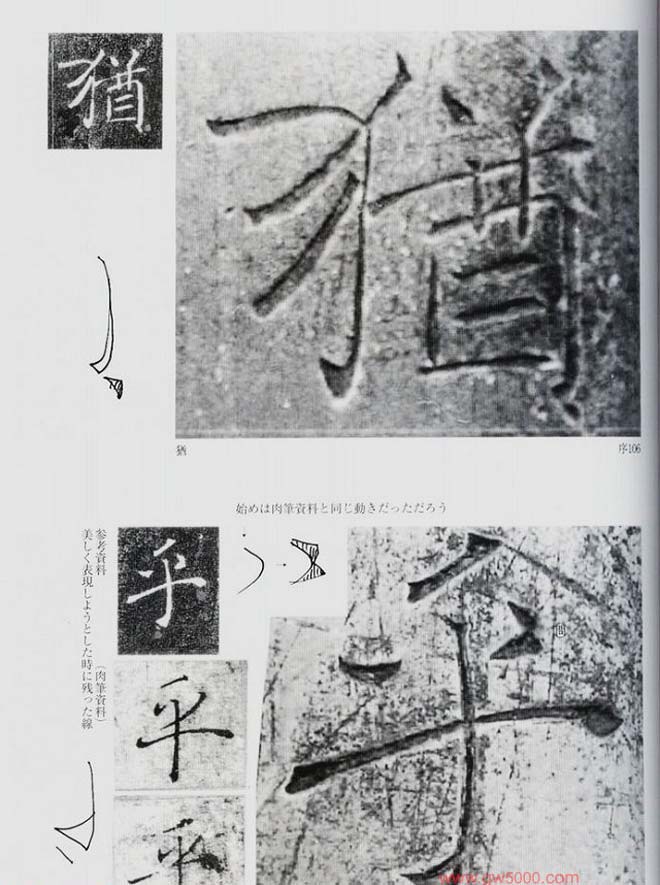 猶
猶
猶
序106
始めは肉筆資料と同じ動きだっただろう
平
平
平
平
参考資料 (肉筆資料)
美しく表現しようとした時に残った線
www.gw5000.com